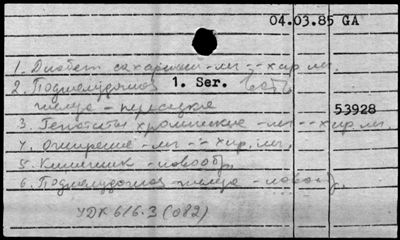 04.03.85 GA
1. Диабет сахарный - лы - - хир. лы.
2. Поджелудочная
1. Ser.
железа - пересадка
53928
3. Гепатиты хронические - лы - - хир. лы.
4. Ожирение - лы - - хир. лы.
5. Кишечник - новообр.
6. Поджелудочная железа - новообр.
УДК 616.3 (082)